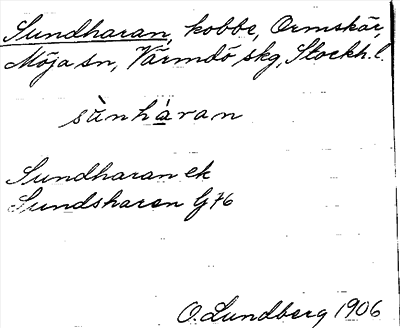 Sundharan, kobbe, Ormskär,
Möja sn, Värmdö skg, Stockh. l.
sùnháran
Sundharan ek
Sundsharen G76
O. Lundberg 1906